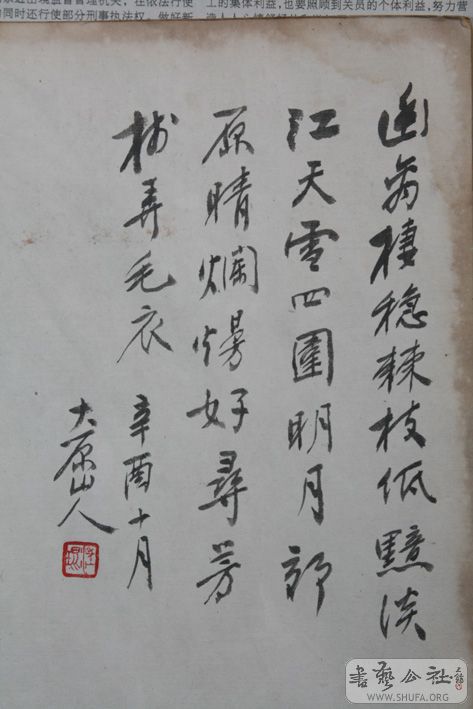 进出境监督管理机关，在依法行使
的同时还行使部分刑事执法权，做好新
工的集体利益，也要照顾到关员的个体利益，努力营
幽禽棲穩棘枝低黯淡
江天雪四圍明月郊
原晴爛熳好尋芳
樹弄毛衣 辛酉十月
大原山人
書藝公社
WWW.SHUFA.ORG